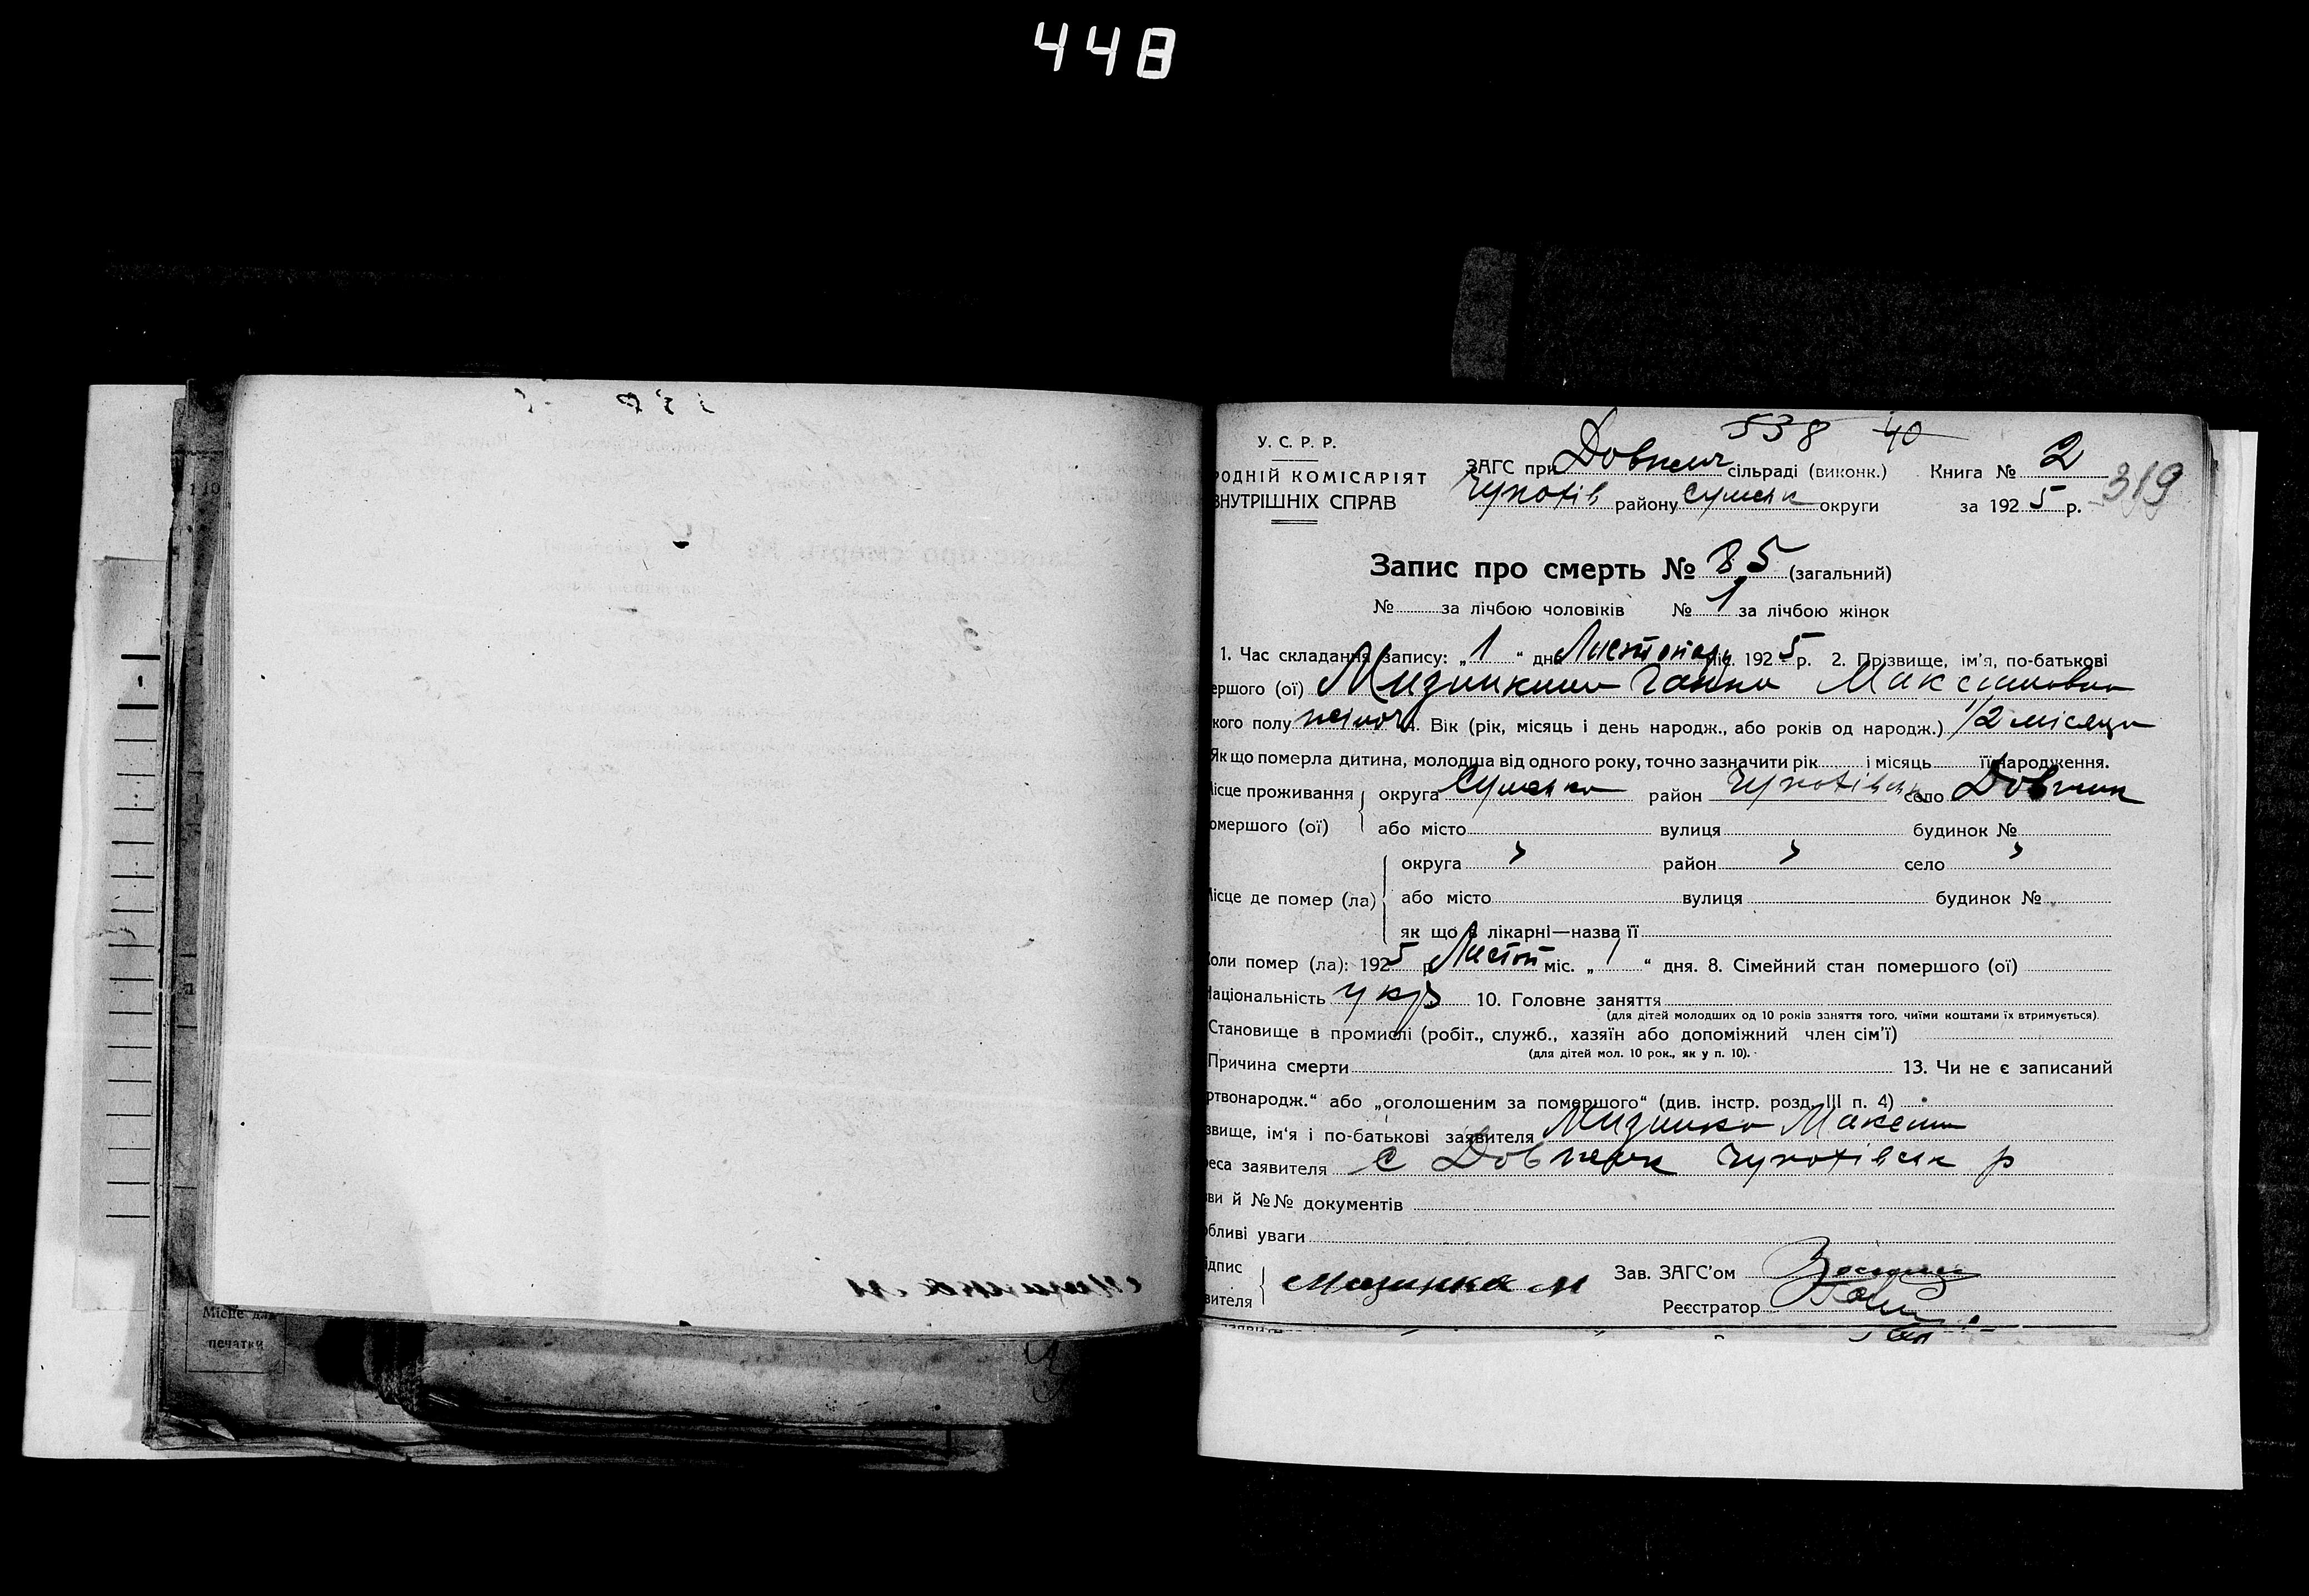 448
538 40
У. С. Р. Р.
РОДНІЙ КОМІСАРІЯТ
ВНУТРІШНІХ СПРАВ
ЗАГС при Довжич сільраді (виконк.) Книга № 2
району Сумськ округи за 1925 р. 319
Запис про смерть № 85 (загальний)
№ за лічбою чоловіків № 1 за лічбою жінок
1. Час складання запису: „1“ дня Листопад міс. 1925 р. 2. Прізвище, ім'я, по-батькові
ершого (ої) Ганна Максимовна
кого полу жіноч 4. Вік (рік, місяць і день народж., або років од народж.) 1/2 місяця
Як що померла дитина, молодша від одного року, точно зазначити рік і місяць її народження.
ісце проживання округа Сумська район село Довжик
омершого (ої) або місто вулиця будинок №
округа район село
ісце де помер (ла) або місто вулиця будинок №
як що в лікарні—назва її
оли помер (ла): 1925 р. Листоп міс. „1“ дня. 8. Сімейний стан помершого (ої)
аціональність укр 10. Головне заняття
(для дітей молодших од 10 років заняття того, чиїми коштами їх втримується).
Становище в промислі (робіт., служб., хазяїн або допоміжний член сім'ї)
(для дітей мол. 10 рок., як у п. 10).
Причина смерти 13. Чи не є записаний
ртвонародж.“ або „оголошеним за помершого“ (див. інстр. розд. III п. 4)
звище, ім'я і по-батькові заявителя Максим
реса заявителя с Довжик р
ви й №№ документів
обливі уваги
ідпис Мазинка М Зав. ЗАГС'ом
вителя Реєстратор
Місце для
печатки